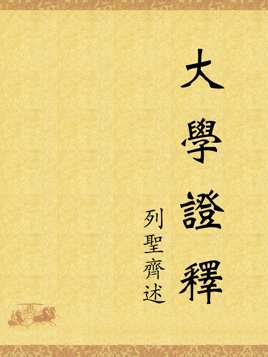 大學證釋
列聖齊述